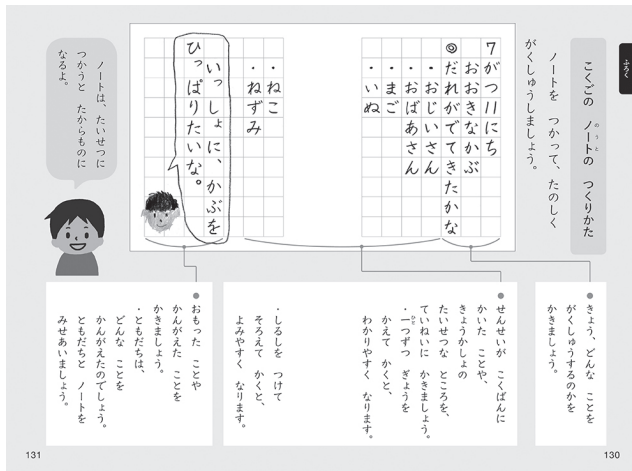 ふろく
こくごの ノートの つくりかた
のうと
ノートを つかって、たのしく
がくしゅうしましょう。
7がつ11にち
おおきなかぶ
◎だれがでてきたかな
・おじいさん
・おばあさん
・まご
・いぬ
・ねこ
・ねずみ
いっしょに、かぶを
ひっぱりたいな。
ノートは、たいせつに
つかうと たからものに
なるよ。
●きょう、どんな ことを
がくしゅうするのかを
かきましょう。
●せんせいが こくばんに
かいた ことや、
きょうかしょの
たいせつな ところを、
ていねいに かきましょう。
・一つずつ ぎょうを
ひと
かえて かくと、
わかりやすく なります。
・しるしを つけて
そろえて かくと、
よみやすく なります。
●おもった ことや
かんがえた ことを
かきましょう。
・ともだちは、
どんな ことを
かんがえたのでしょう。
ともだちと ノートを
みせあいましょう。
131
130